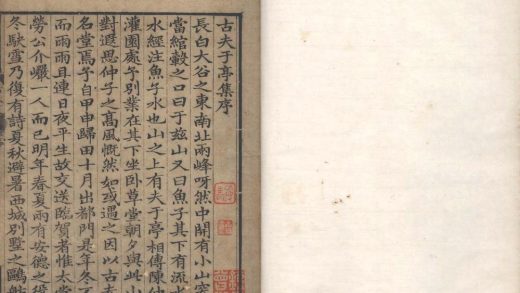 古夫于亭集序
長白大谷之東南址兩峰呀然中開有小山突
當綰轂之口曰于玆山又曰魚子其下有流水
水經注魚子水也山之上有夫于亭相傳陳仲
灌園處予別業在其下坐卧草堂朝夕與此山
對遐思仲子之高風慨然如或遇之因以古夫
名堂焉予自甲申歸田十月出都門是年冬不
而雨雨且連日夜平生故交送臨賀者惟太
勞公介巖一人而已明年春夏雨有安德之役
冬缺雪乃復有詩夏秋避暑西城別墅之鷗舫